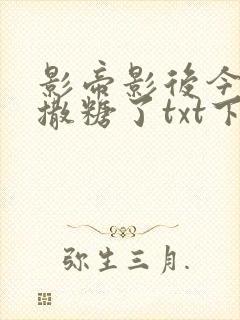 影帝影後今
撒糖了txt下
弥生三月.